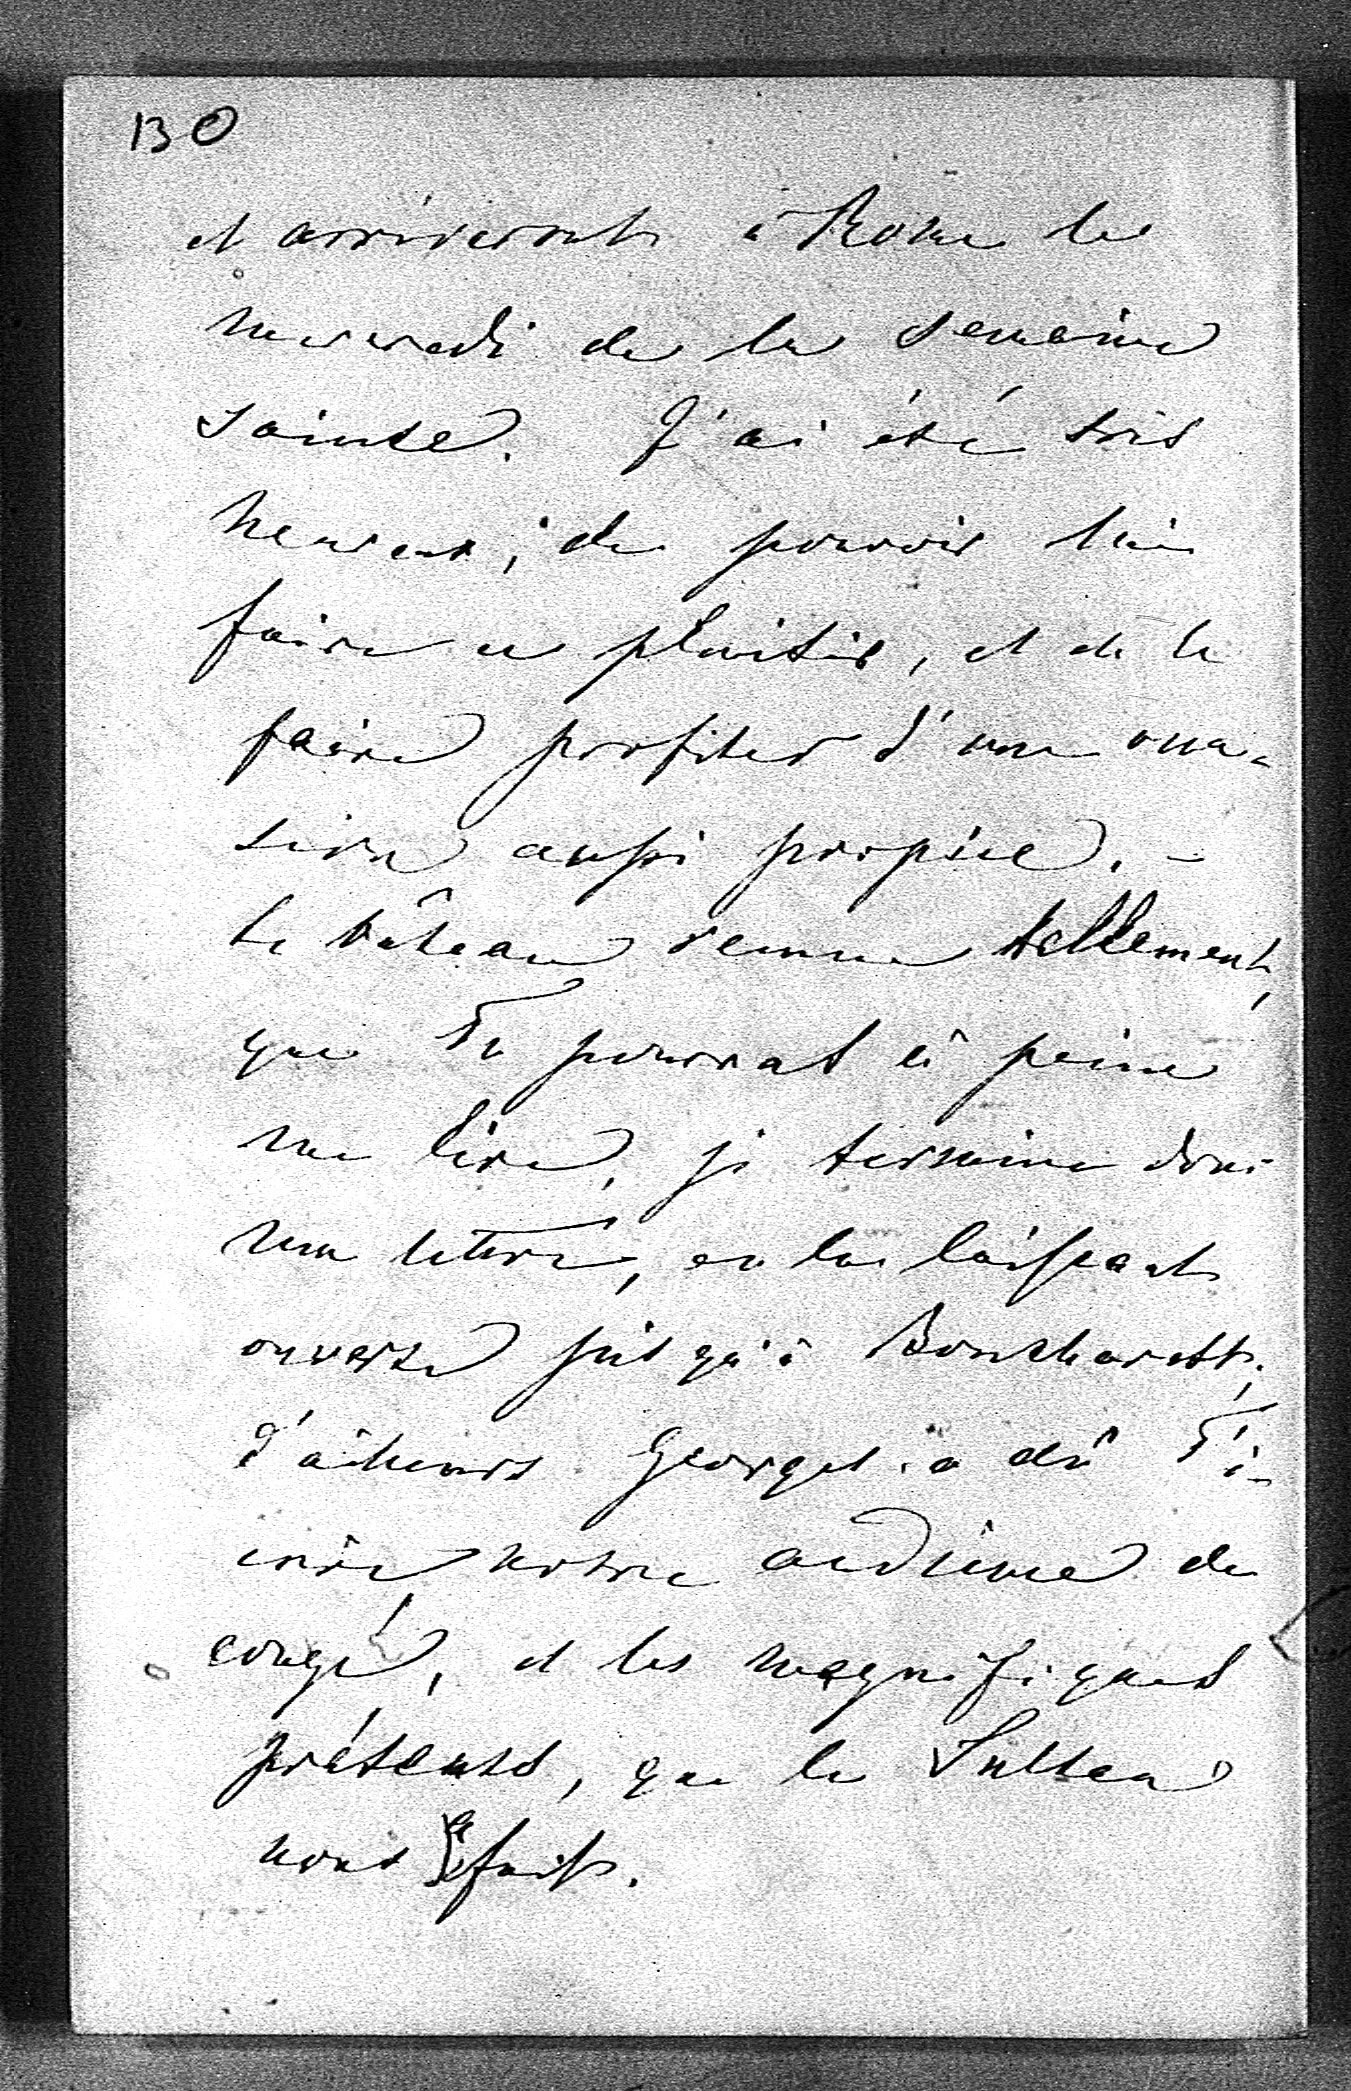 130
et arriveront à Rome le
mercredi de la semaine
sainte. J'ai été très
heureux, de pouvoir lui
faire ce plaisir, et de le
faire profiter d'une occa-
sion aussi propice. –
Le bâteau remue tellement,
que Tu pourras à peine
me lire, je termine donc
ma lettre, en la laissant
ouverte jusqu'à Boukharest,
d'ailleurs Georges a dû T'é-
crire notre audience de
congé, et les magnifiques
présents, que le Sultan
nous a faits.